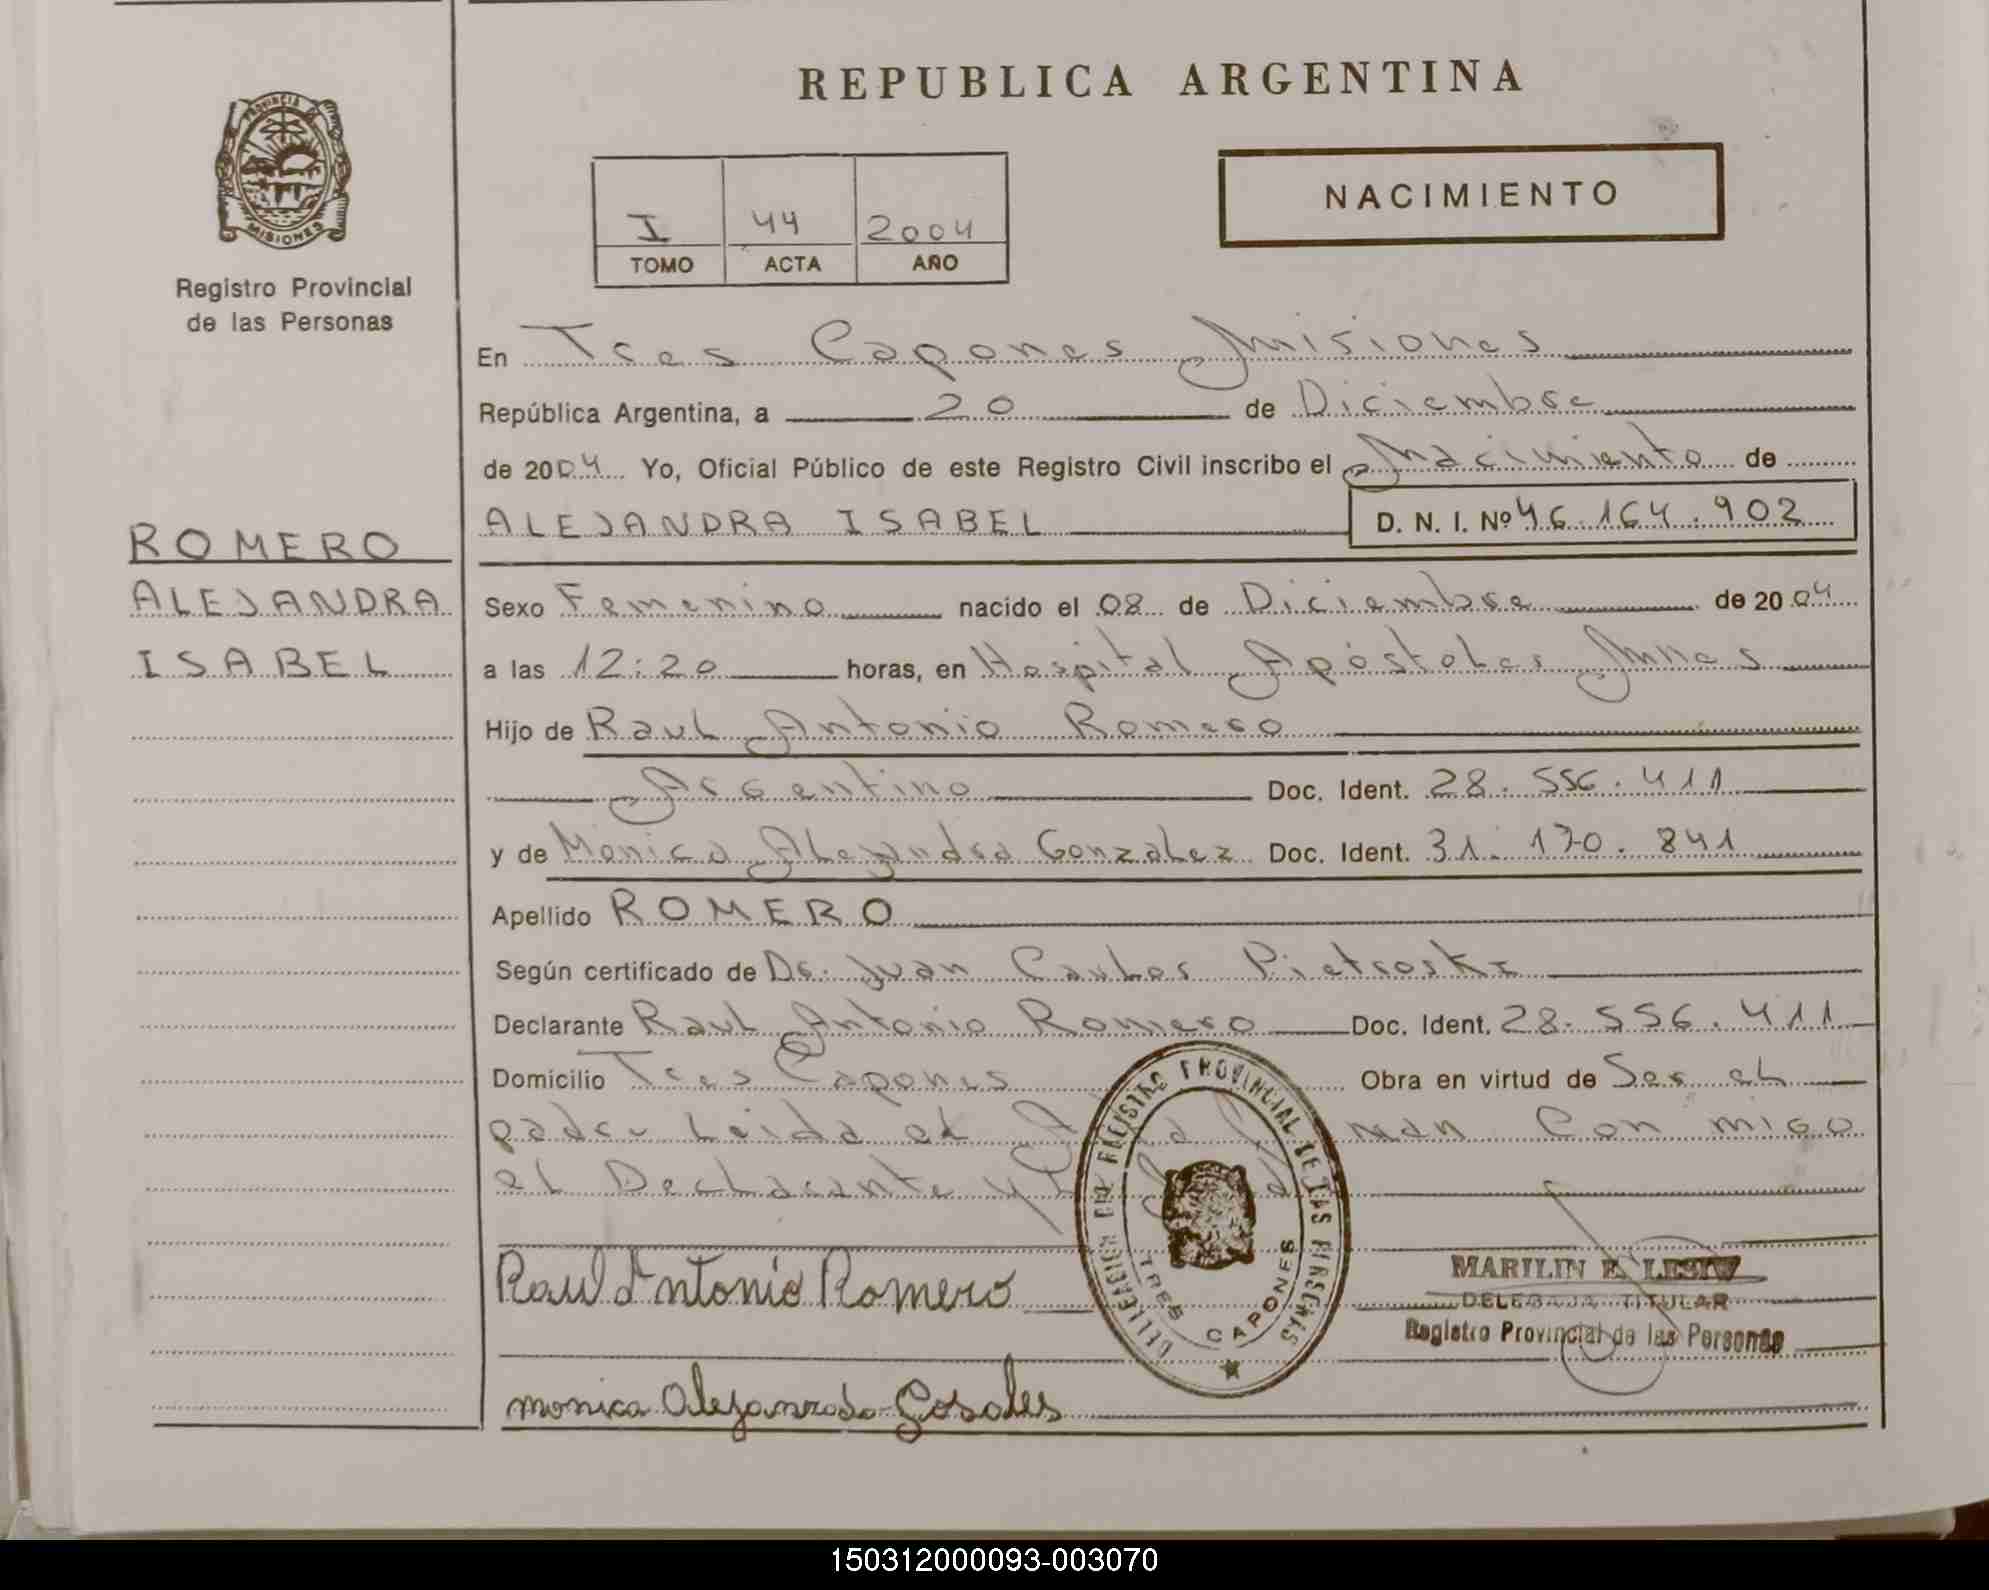 REPUBLICA ARGENTINA
PROVINCIA
MISIONES
Registro Provincial
de las Personas
NACIMIENTO
I 44 2004
TOMO ACTA AÑO
En Tres Capones Misiones
República Argentina, a 20 de Diciembre
de 2004 Yo, Oficial Público de este Registro Civil inscribo el Nacimiento de
ALEJANDRA ISABEL D. N. I. Nº 46.164.902
ROMERO
ALEJANDRA
ISABEL
Sexo Femenino nacido el 08 de Diciembre de 2004
a las 12:20 horas, en Hospital Apóstoles Mnes
Hijo de Raul Antonio Romero
Argentino Doc. Ident. 28.556.411
y de Monica Alejandra Gonzalez Doc. Ident. 31.170.841
Apellido ROMERO
Según certificado de Dr. Juan Carlos Pietroski
Declarante Raul Antonio Romero Doc. Ident. 28.556.411
Domicilio Tres Capones Obra en virtud de Ser el
padre Leida el man Con migo
el Declarante y
DELEGACION DEL REGISTRO PROVINCIAL DE LAS PERSONAS
TRES CAPONES
Raul Antonio Romero
MARILIN E. LESIW
DELEGADA TITULAR
Registro Provincial de las Personas
monica Alejanrada Gosales
150312000093-003070